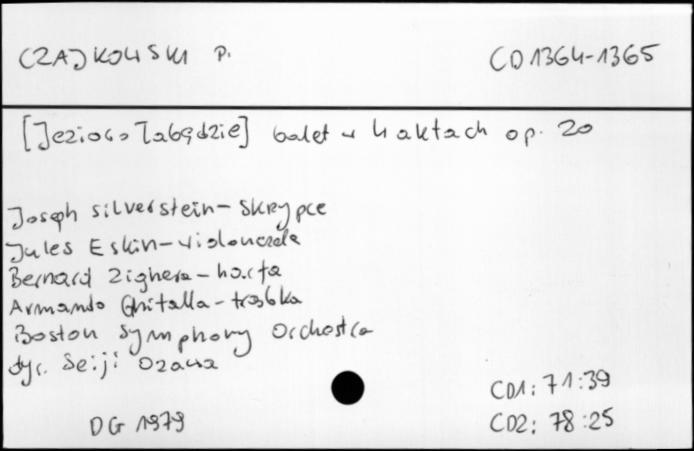 CZAJKOWSKI P.
CD 1364-1365
[Jezioro Łabędzie] balet w 4 aktach op. 20
Joseph Silverstein - skrzypce
Jules Eskin - violonczela
Bernard Zighera - harfa
Armando Ghitalla - trąbka
Boston Symphony Orchestra
dyr. Seiji Ozawa
CD1: 71:39
DG 1979
CD2: 78:25